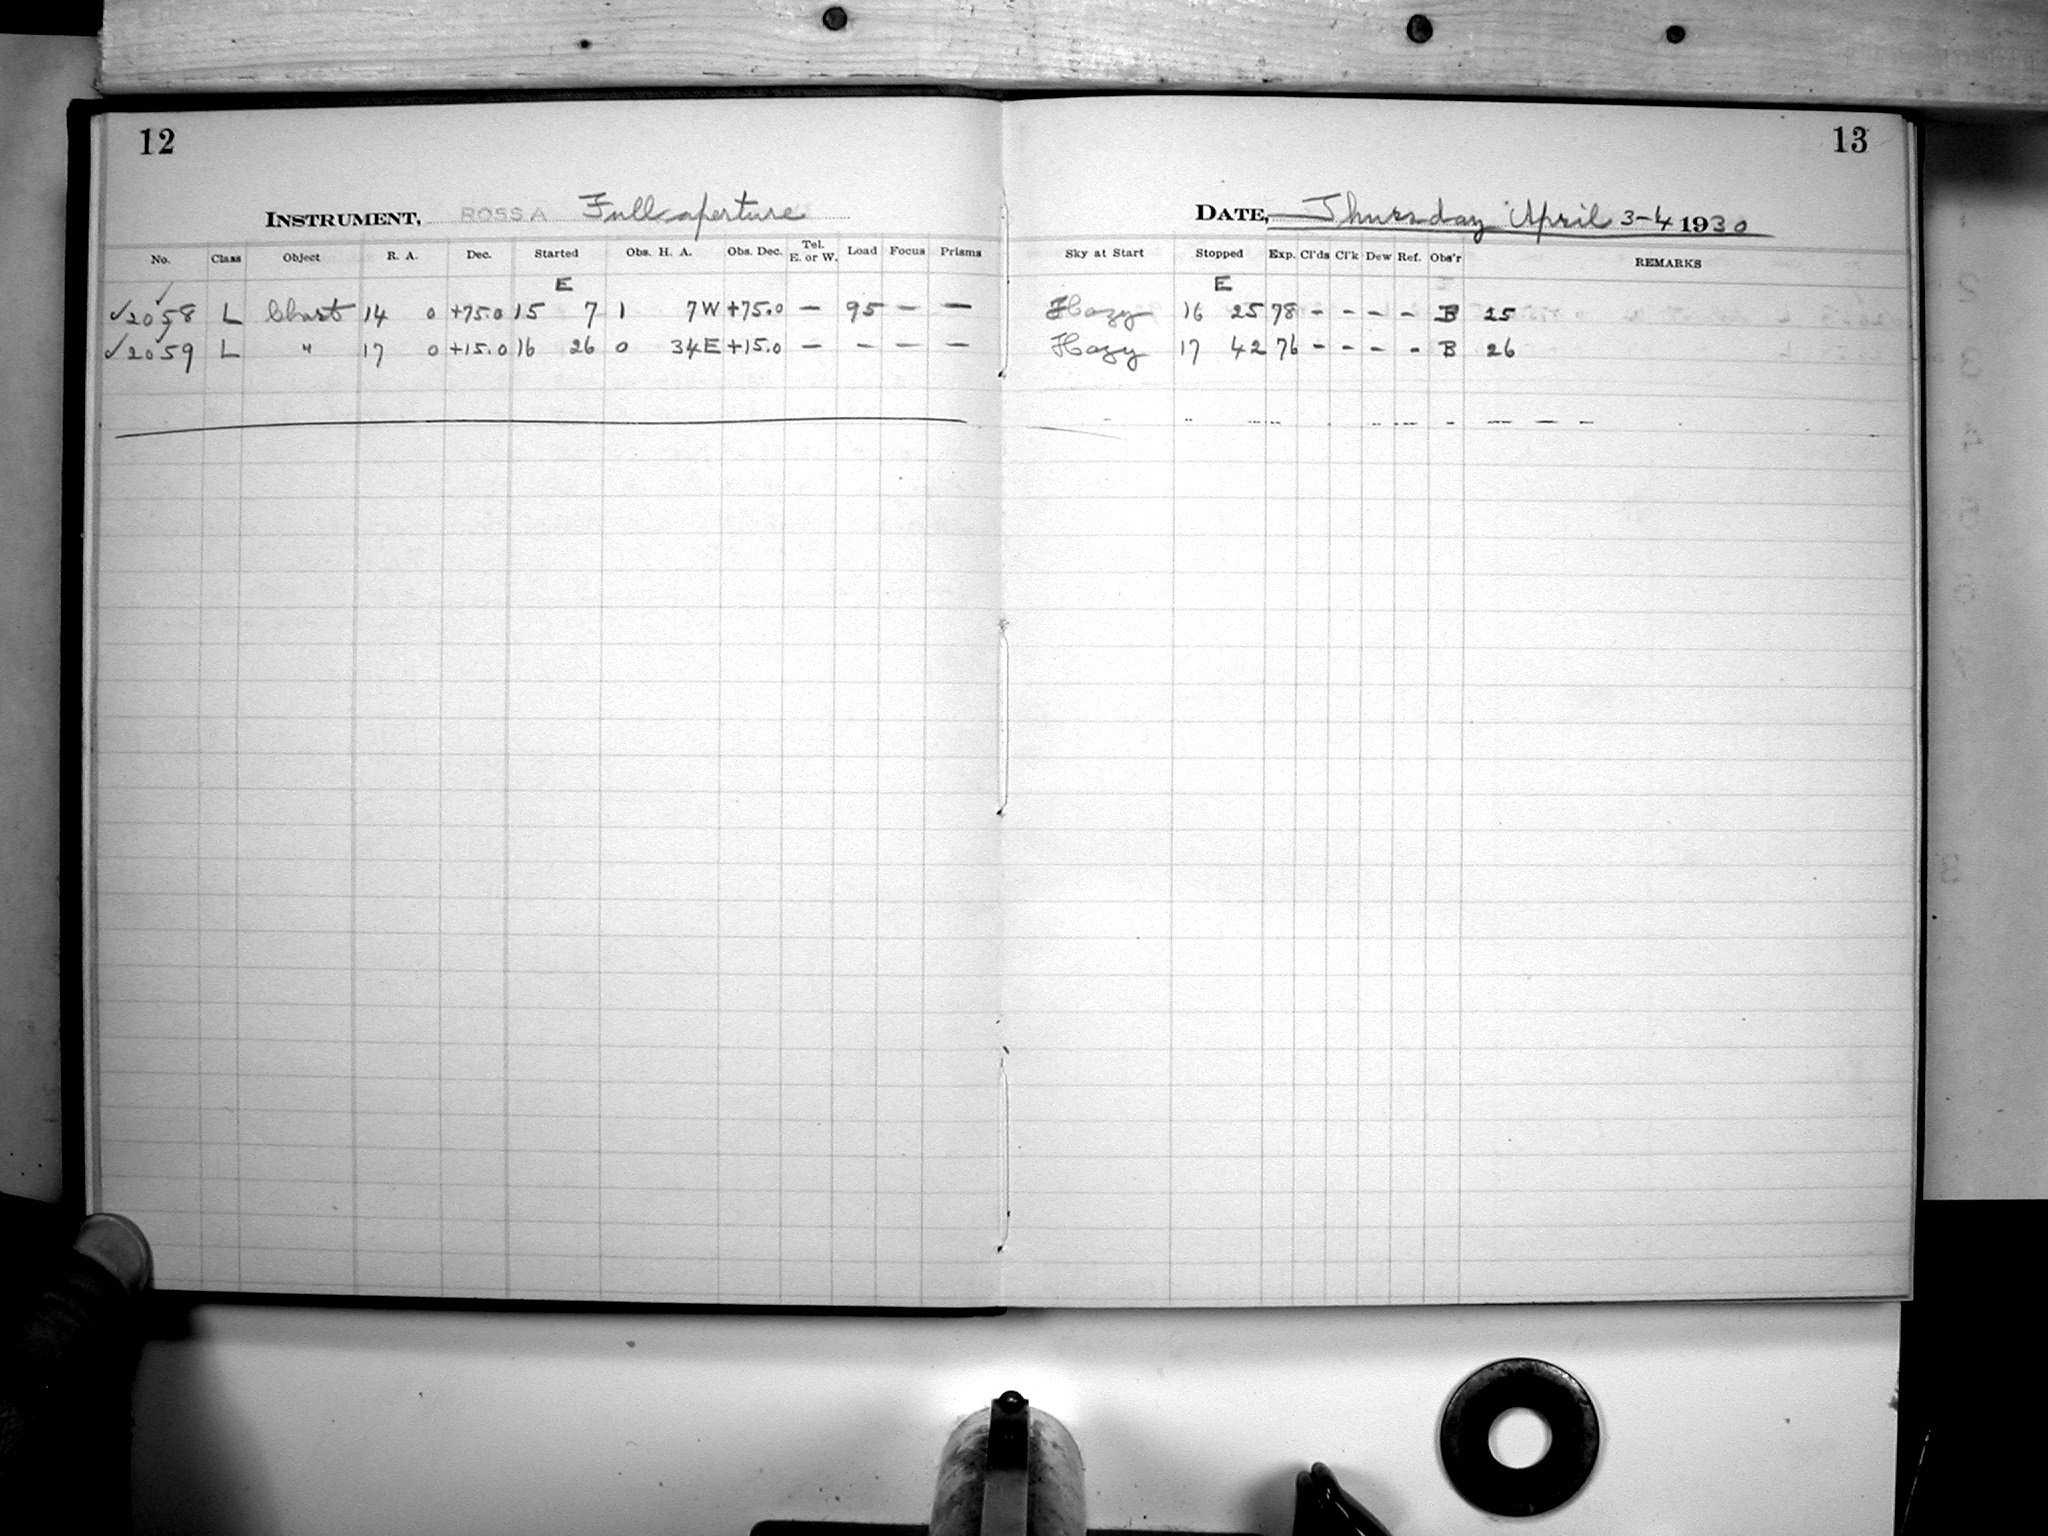 12
INSTRUMENT, ROSS A Full aperture
No. Class Object R. A. Dec. Started Obs. H. A. Obs. Dec. Tel. E. or W. Load Focus Prisms
E
✓2058 L Chart 14 0 +75.0 15 7 1 7W +75.0 — 95 — —
✓2059 L " 17 0 +15.0 16 26 0 34E +15.0 — — — —
13
DATE, Thursday April 3-4 1930
Sky at Start Stopped Exp. Cl'ds Cl'k Dew Ref. Obs'r REMARKS
E
Hazy 16 25 78 - - - - B 25
Hazy 17 42 76 - - - - B 26